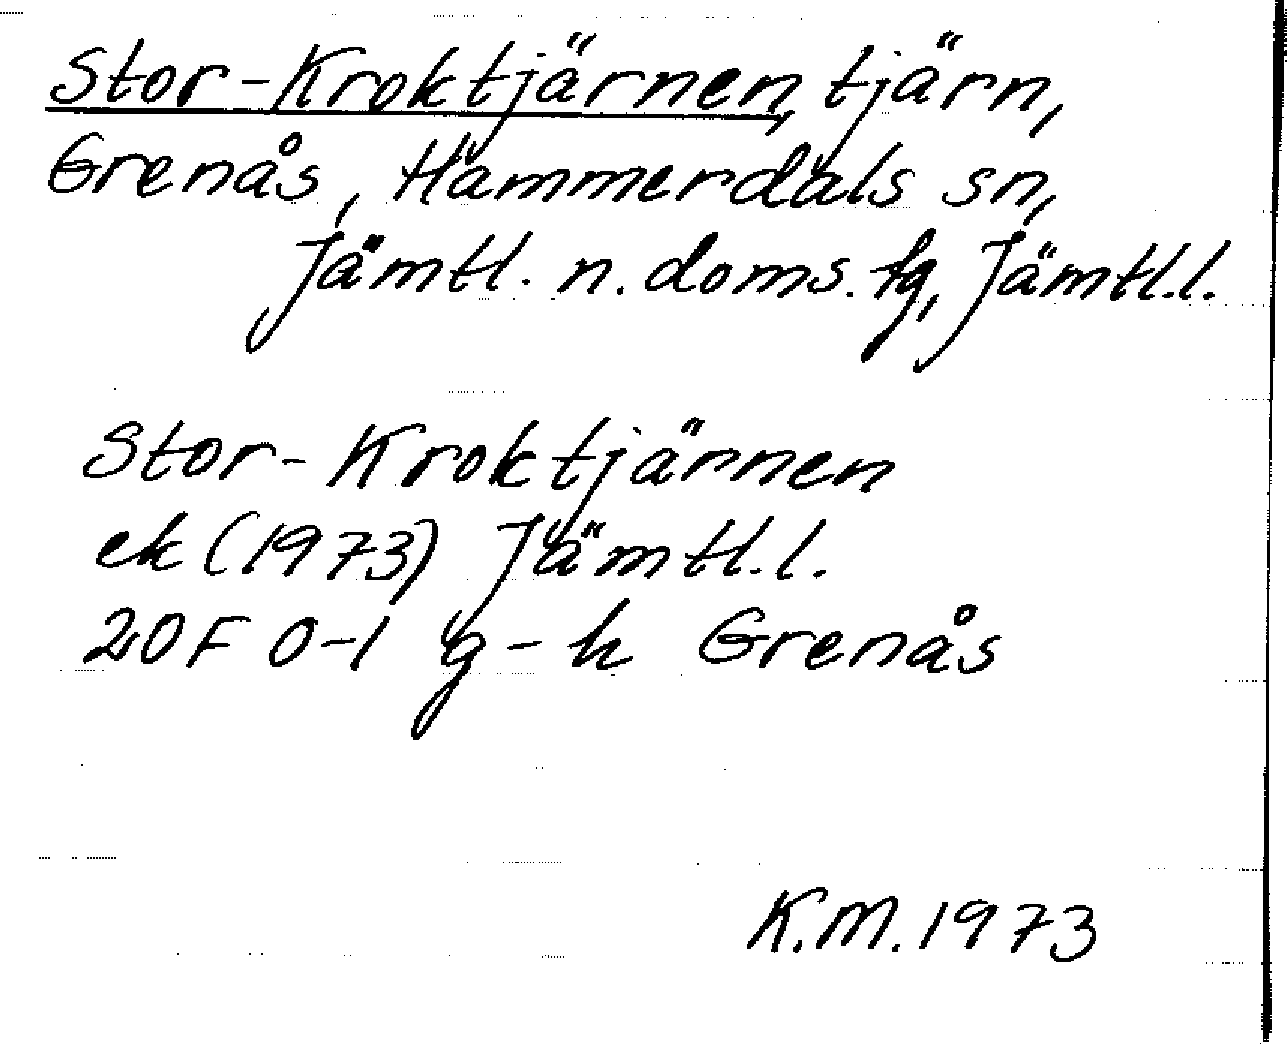 Stor-Kroktjärnen, tjärn,
Grenås, Hammerdals sn,
Jämtl. n. doms. tg, Jämtl.l.
Stor-Kroktjärnen
ek (1973) Jämtl.l.
20F 0-1 g-h Grenås
K.M. 1973